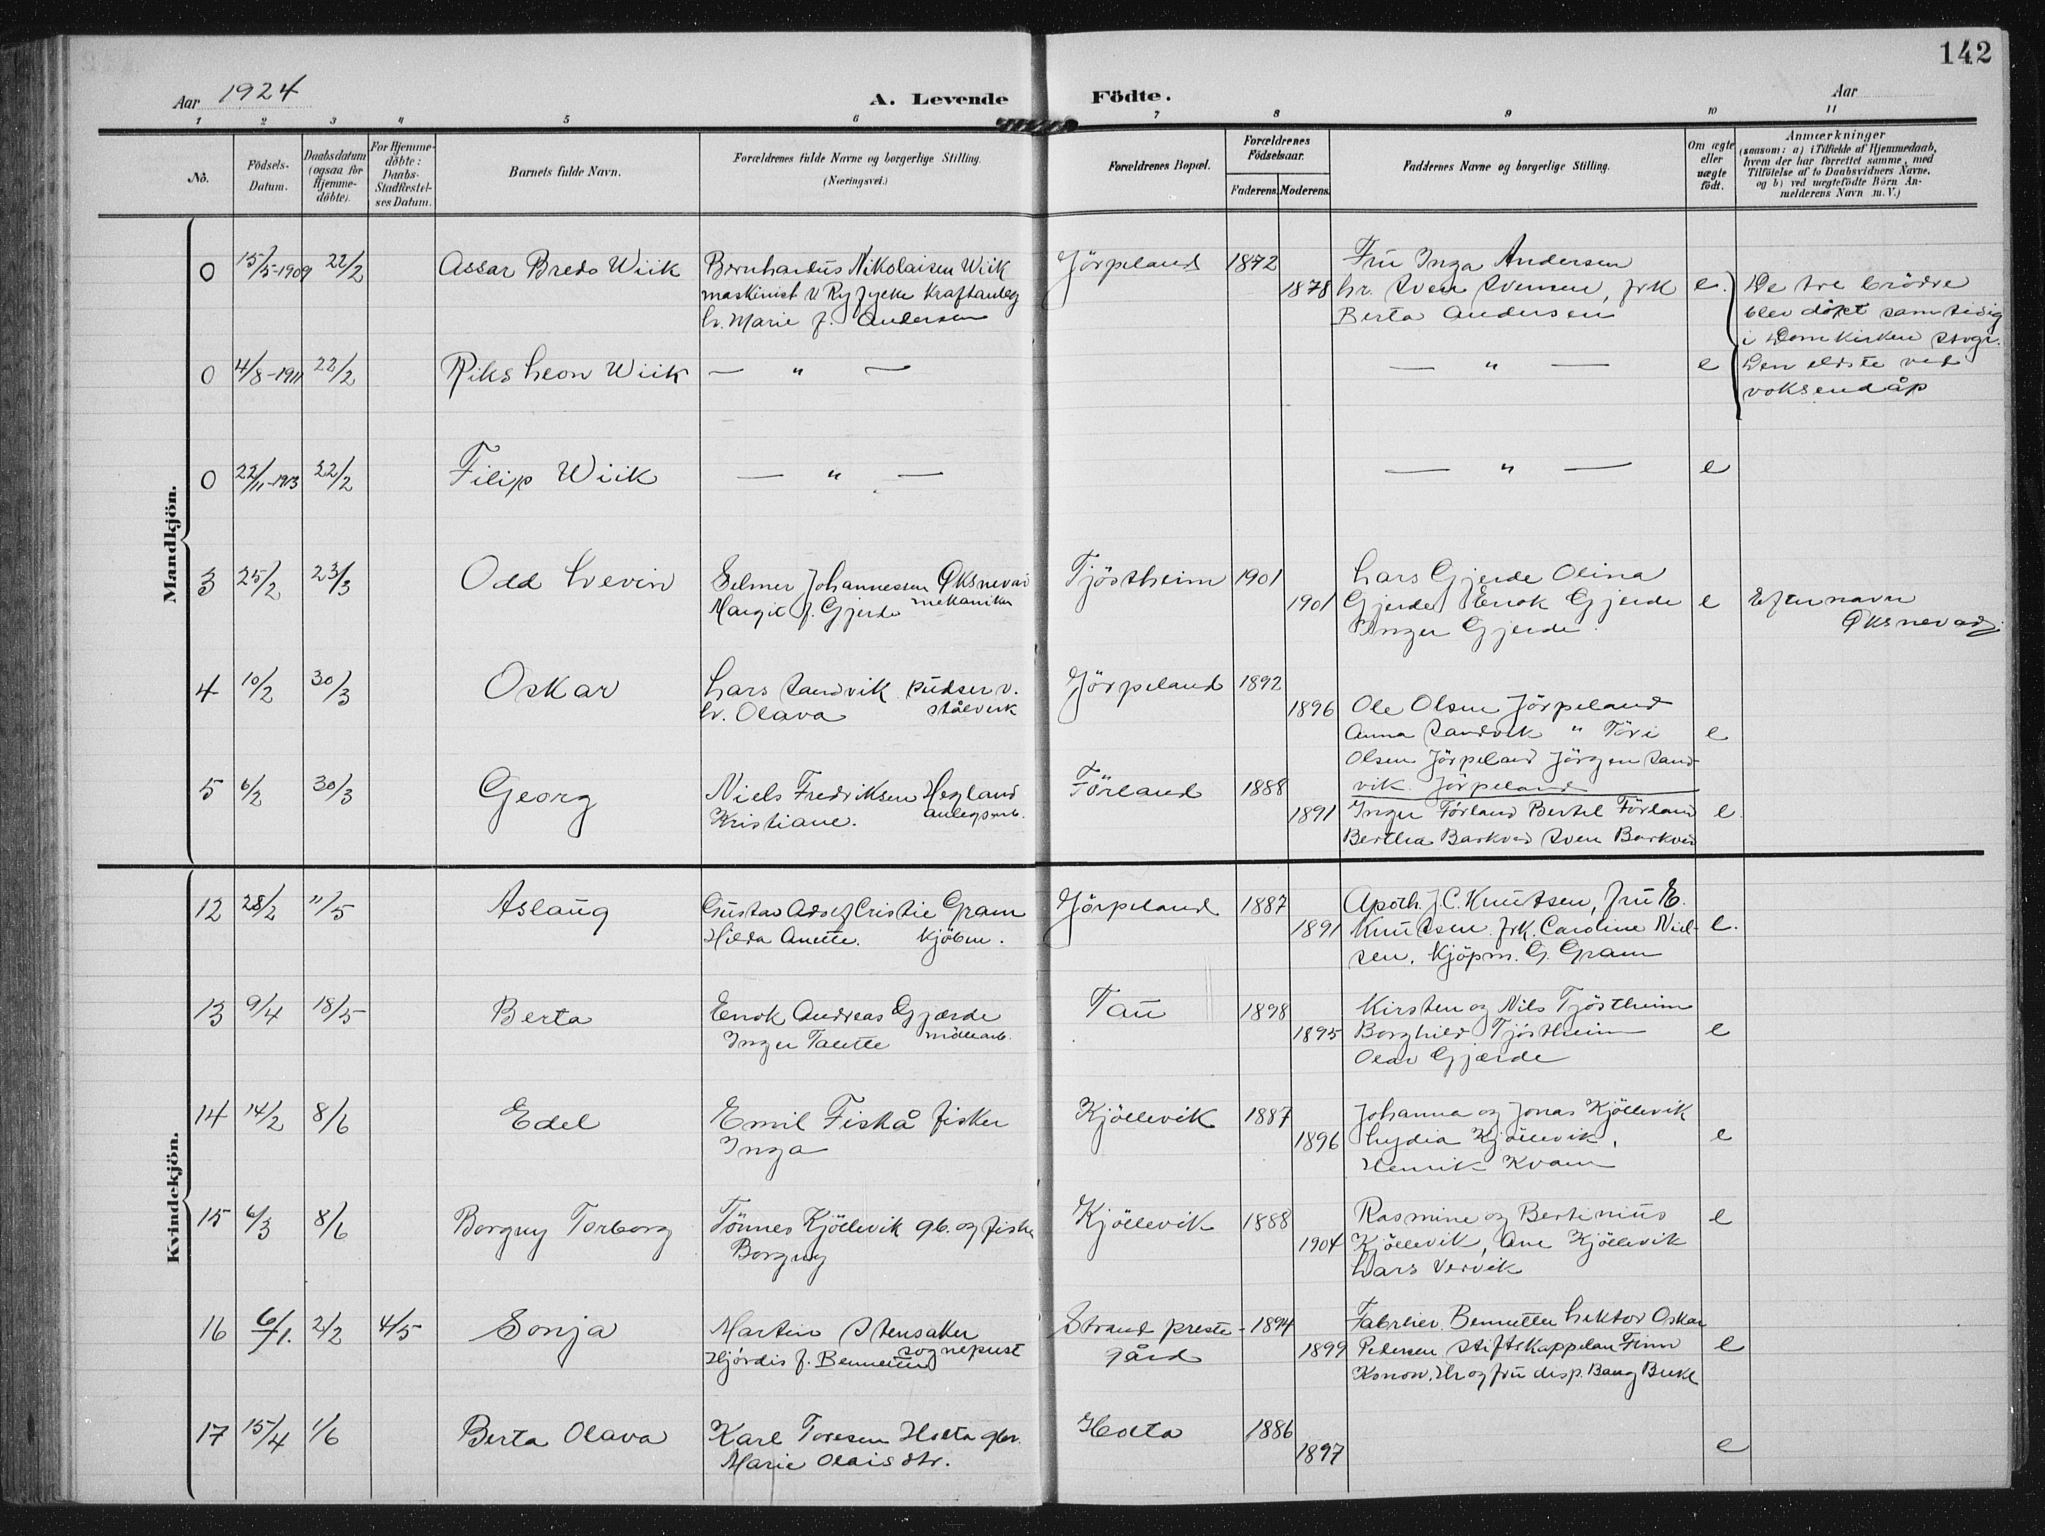 142
Aar 1924
A. Levende Födte.
Aar
1 2 3 4 5 6 7 8 9 10 11
No.
Födsels-Datum.
Daabsdatum (ogsaa for Hjemme-döbte).
For Hjemme-döbte: Daabs-Stadfæstel-ses Datum.
Barnets fulde Navn.
Forældrenes fulde Navne og borgerlige Stilling. (Næringsvei.)
Forældrenes Bopæl.
Forældrenes Födselsaar.
Faderens. Moderens.
Faddernes Navne og borgerlige Stilling.
Om ægte eller uægte födt.
Anmærkninger
(saasom: a) i Tilfælde af Hjemmedaab,
hvem der har forrettet samme, med
Tilföielse af to Daabsvidners Navne,
og b) ved uægtefödte Börn An-
melderens Navn m. V.)
Mandkjön.
0 15/5-1909 22/2 Assar Bredo Wiik Bernhardus Nikolaisen Wiik Jörpeland 1872 Fru Inga Andersen
maskinist v Ryfylke Kraftanleg 1878 hr. Sven Svensen, frk e. De tre brödre
h. Marie f. Andersen Berta Andersen blev döpt samtidig
i Domkirken Stvgr.
0 4/8-1911 22/2 Riks Leon Wiik — " — — " — e Den eldste ved
voksendåp
0 22/11-1913 22/2 Filip Wiik — " — — " — e
3 25/2 23/3 Odd Levin Selmer Johannessen Øksnevad Tjöstheim 1901 Lars Gjerde Olina
Margit f. Gjerde mekaniker 1901 Gjerde Enok Gjerde e Efternavn
Inger Gjerde Øksnevad
4 10/2 30/3 Oskar Lars Sandvik pudser v. Jörpeland 1892
h. Olava stålverk 1896 Ole Olsen Jörpeland
Anna Sandvik " Tori e
Olsen Jörpeland Jörgen Sand-
vik Jörpeland
5 6/2 30/3 Georg Niels Fredriksen Hegland Förland 1888
Kristiane. anlegsarb. 1891 Inger Förland Bertel Förland e.
Bertha Barkved Sven Barkved
Kvindekjön.
12 28/2 11/5 Aslaug Gustav Adolf Cristie Gram Jörpeland 1887 Apoth. J.C. Knutsen, fru E.
Hilda Anette. kjöbm. 1891 Knutsen frk. Caroline Niel- e.
sen, Kjöpm. G. Gram
13 9/4 18/5 Berta Enok Andreas Gjærde Tau 1898 Kirsten og Nils Tjöstheim
Inger Talette möllearb. 1895 Borghild Tjöstheim e
Olav Gjærde
14 14/2 8/6 Edel Emil Fiskå fisker Kjöllevik 1887 Johanna og Jonas Kjöllevik
Inga 1896 Lydia Kjöllevik, e
Henrik Kvam
15 6/3 8/6 Borgny Torborg Tönnes Kjöllevik gb. og fisker Kjöllevik 1888 Rasmine og Bertinius e
Borgny 1904 Kjöllevik, Ane Kjöllevik
Lars Vervik
16 6/1. 2/2 4/5 Sonja Martin Stensaker Strand preste- 1894 Fabreier Bennetter Lektor Oskar
Hjördis f. Bennetter sogneprest gård 1899 Pedersen Stiftskappelan Finn e
Konow. Hr og fru disp. Bang
17 15/4 1/6 Berta Olava Karl Toresen Holta gbr. Holta 1886
Marie Olaisdtr. 1897 e